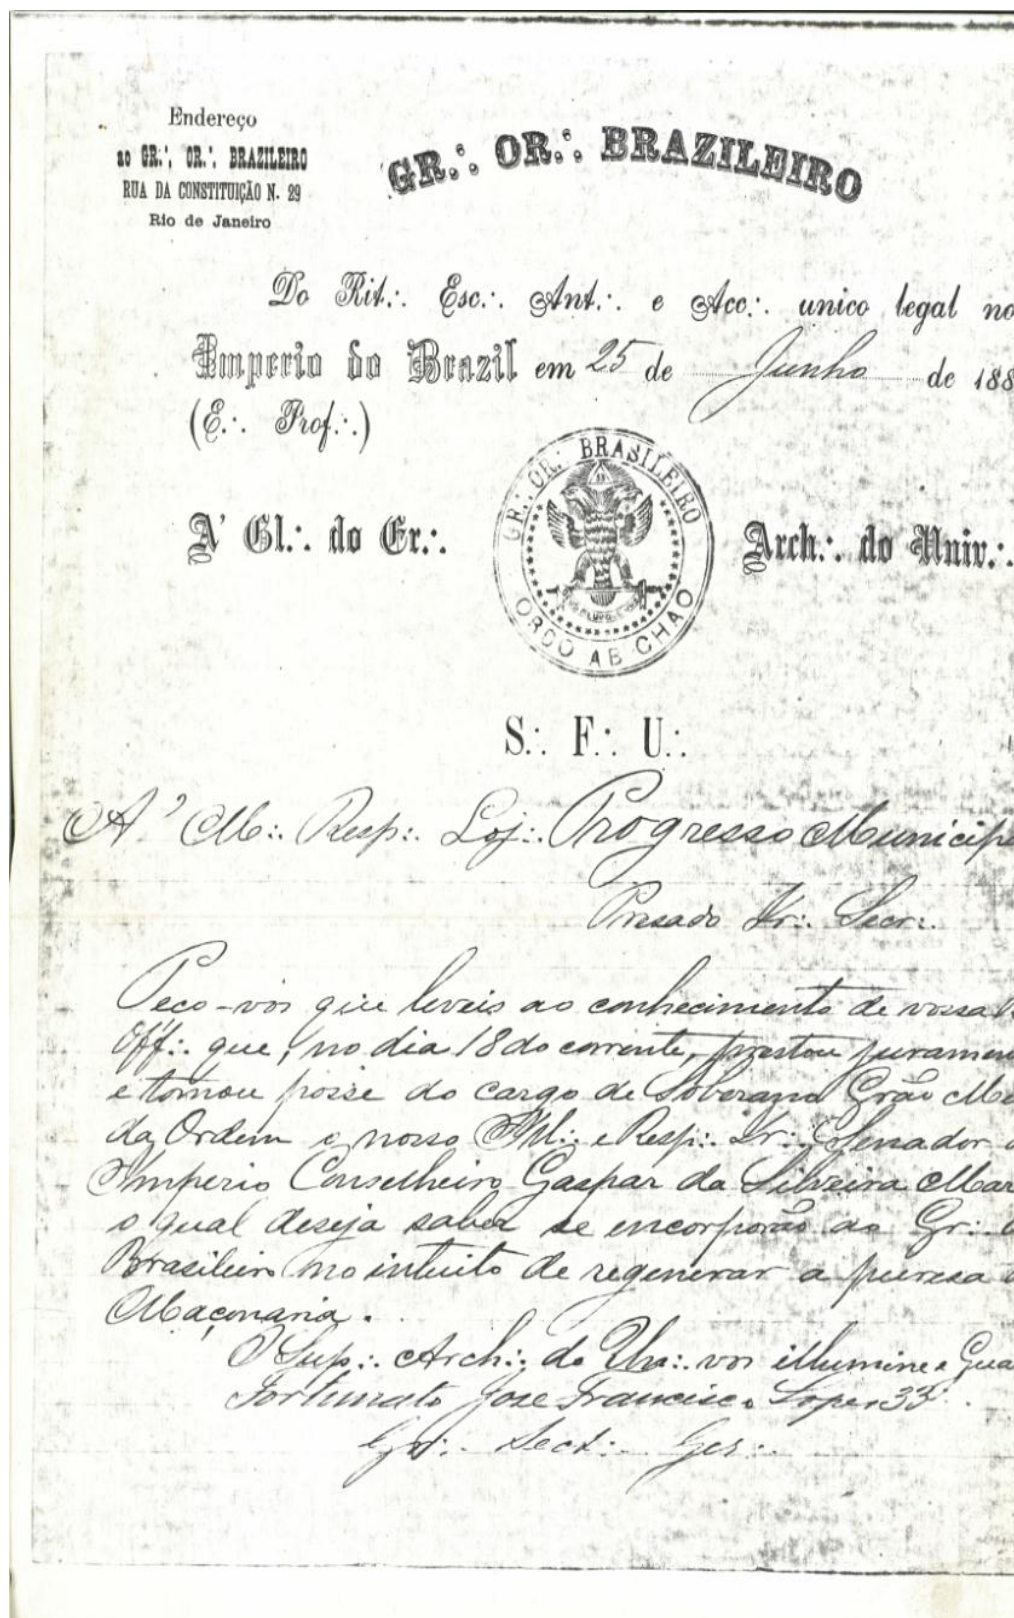 Endereço
ao GR.·. OR.·. BRAZILEIRO
RUA DA CONSTITUIÇÃO N. 29
Rio de Janeiro
GR.·. OR.·. BRAZILEIRO
Do Rit.·. Esc.·. Ant.·. e Acc.·. unico legal no
Imperio do Brazil em 25 de Junho de 188
(E.·. Prof.·.)
GR.·. OR.·. BRASILEIRO
ORDO AB CHAO
A' Gl.·. do Gr.·. Arch.·. do Univ.·.
S.·. F.·. U.·.
A' M.·. Resp.·. Loj.·. Progresso Municip
Presado Ir.·. Secr.·.
Peço-vos que leveis ao conhecimento de vossa
Off.·. que, no dia 18 do corrente, prestou juramen
e tomou posse do cargo de Soberano Grão Me
da Ordem o nosso Ill.·. e Resp.·. Ir.·. Senador
Imperio Conselheiro Gaspar da Silveira Mar
o qual deseja saber se encorporão ao Gr.·. O
Brasileiro no intuito de regenerar a puresa
Maçonaria.
O Sup.·. Arch.·. do Un.·. vos illumine e Gua
Fortunato José Francisco Lopes 33
Gr.·. Secr.·. Ger.·.